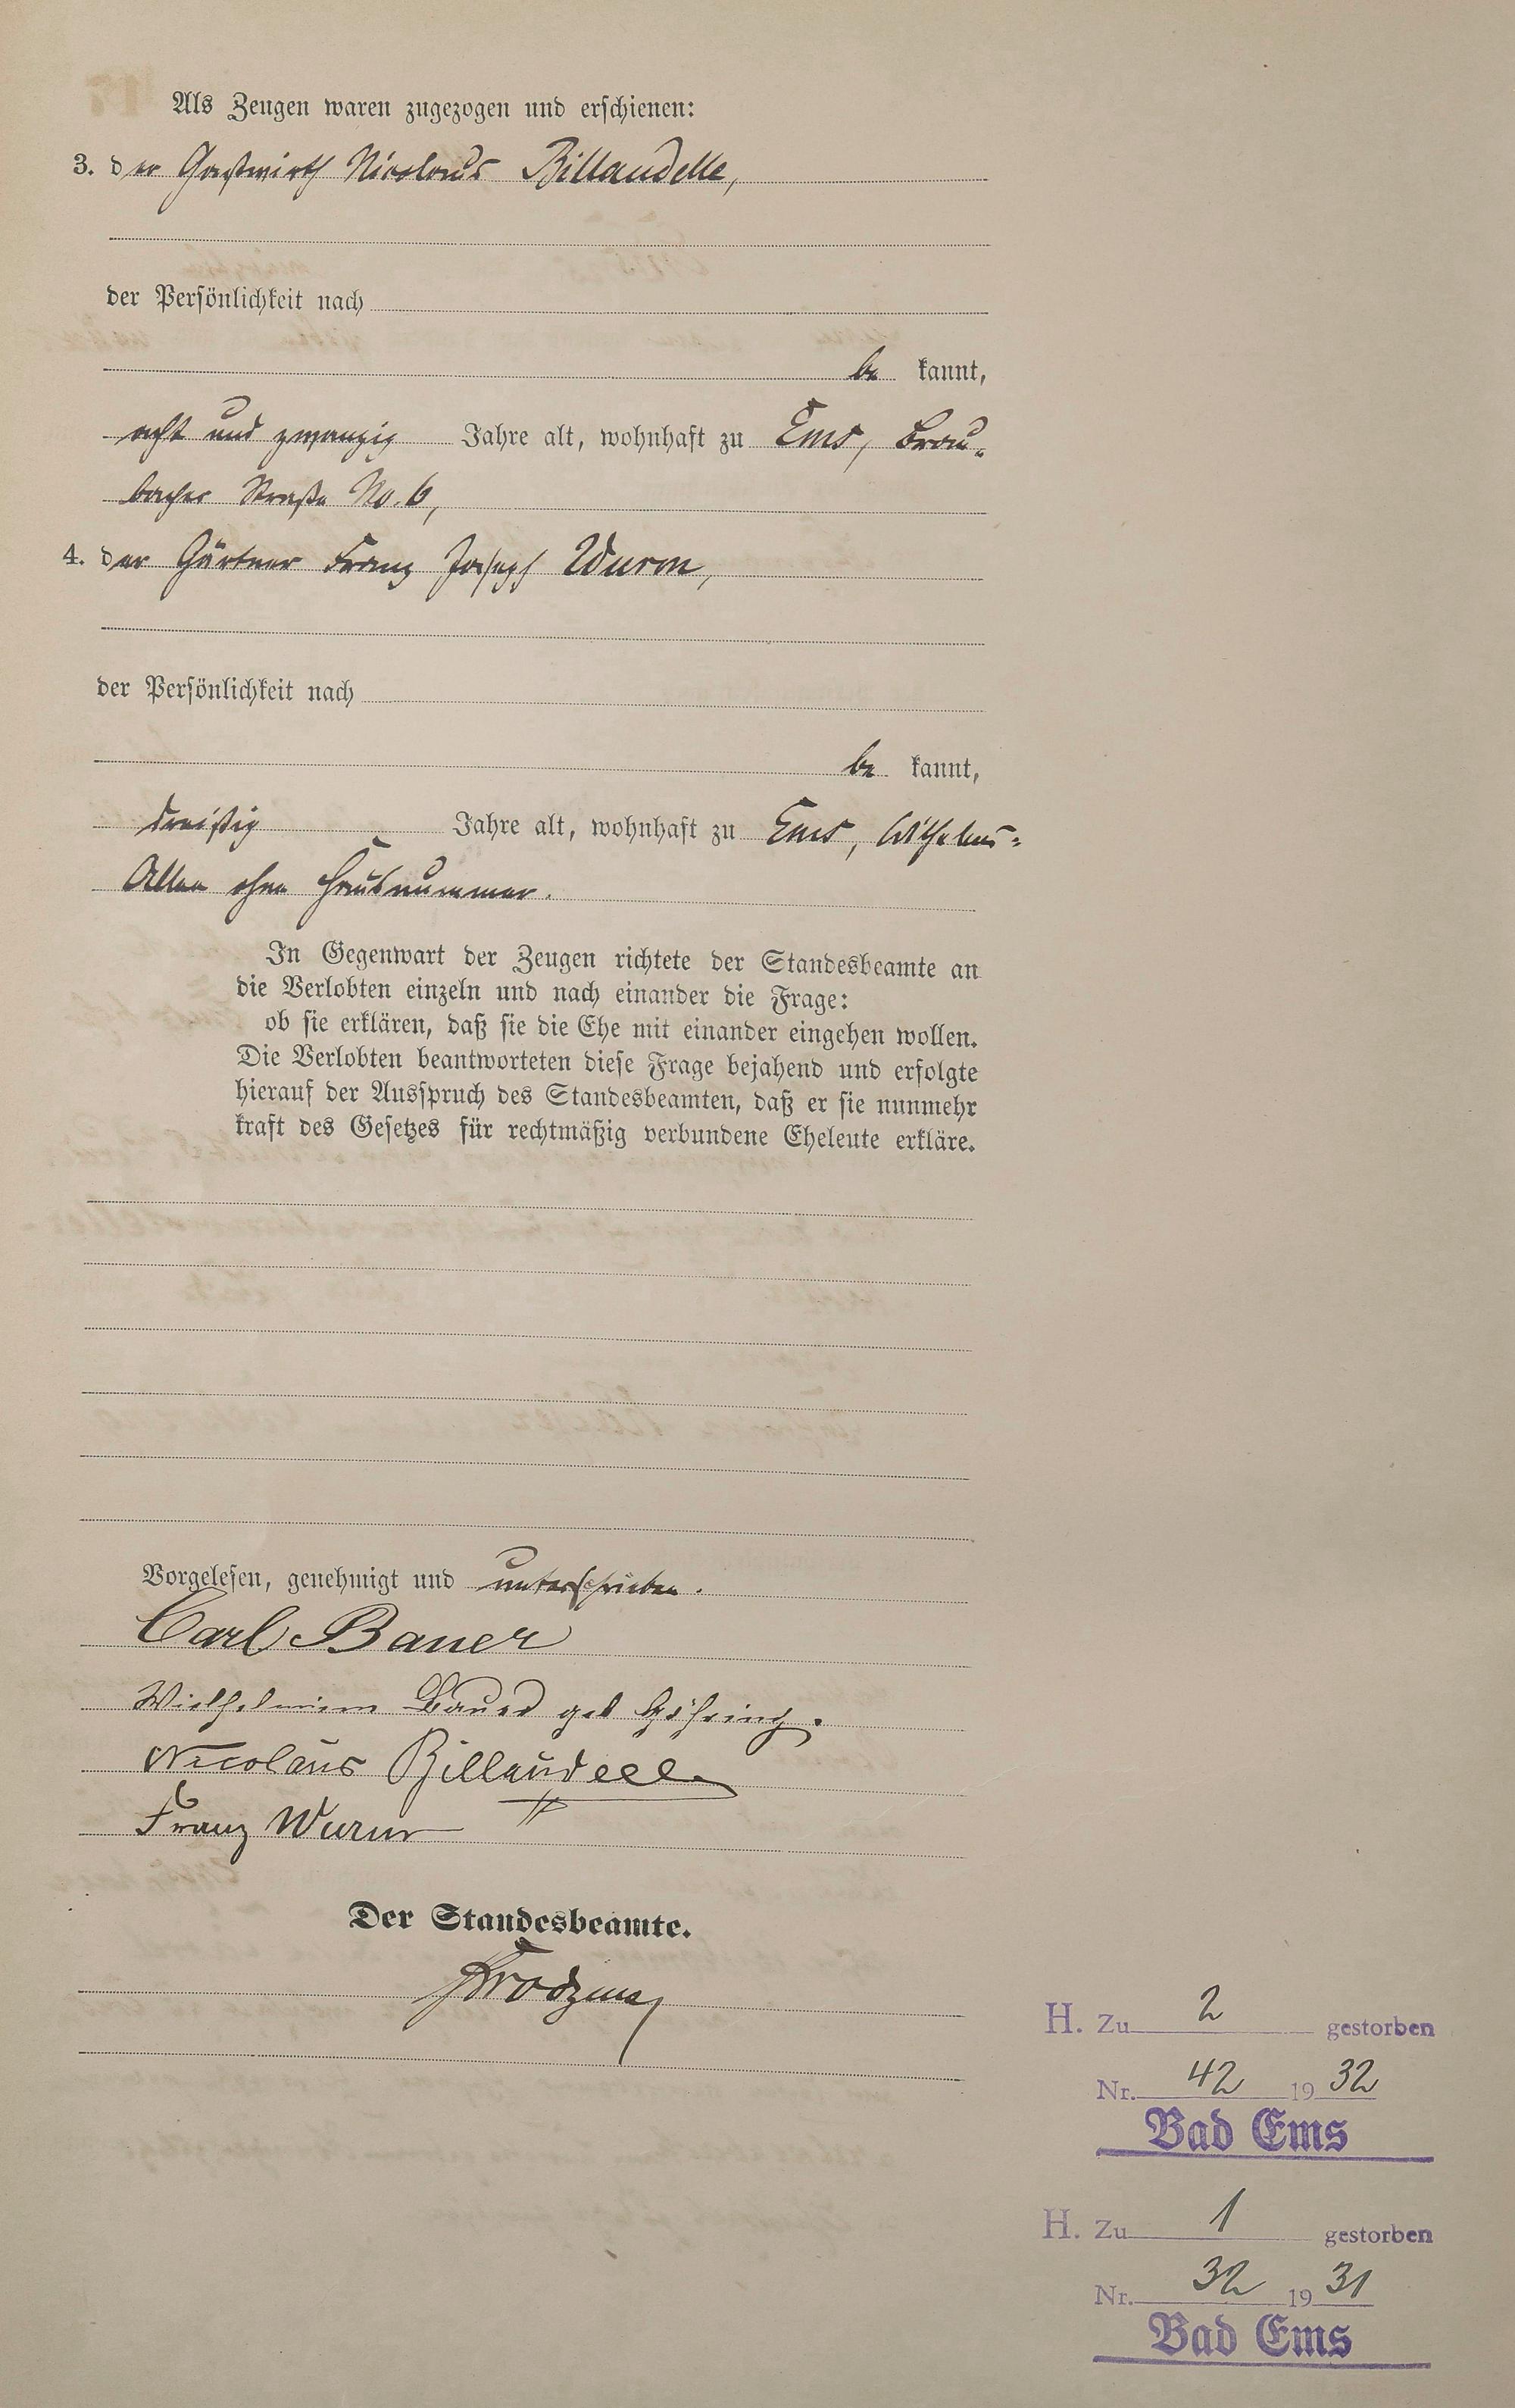 Als Zeugen waren zugezogen und erschienen:
3. der Gastwirth Nicolaus Billaudelle,
der Persönlichkeit nach
be kannt,
acht und zwanzig Jahre alt, wohnhaft zu Ems, Brau-
bacher Straße No. 6,
4. der Gärtner Franz Joseph Wurm,
der Persönlichkeit nach
be kannt,
dreißig Jahre alt, wohnhaft zu Ems, Wilhelms-
Allee ohne Hausnummer.
In Gegenwart der Zeugen richtete der Standesbeamte an
die Verlobten einzeln und nach einander die Frage:
ob sie erklären, daß sie die Ehe mit einander eingehen wollen.
Die Verlobten beantworteten diese Frage bejahend und erfolgte
hierauf der Ausspruch des Standesbeamten, daß er sie nunmehr
kraft des Gesetzes für rechtmäßig verbundene Eheleute erkläre.
Vorgelesen, genehmigt und unterschrieben.
Carl Bauer
Wielhelmine Bauer geb Göhring.
Nicolaus Billaudelle
Franz Wurm
Der Standesbeamte.
H. Zu 2 gestorben
Nr. 42 1932
Bad Ems
H. Zu 1 gestorben
Nr. 32 1931
Bad Ems